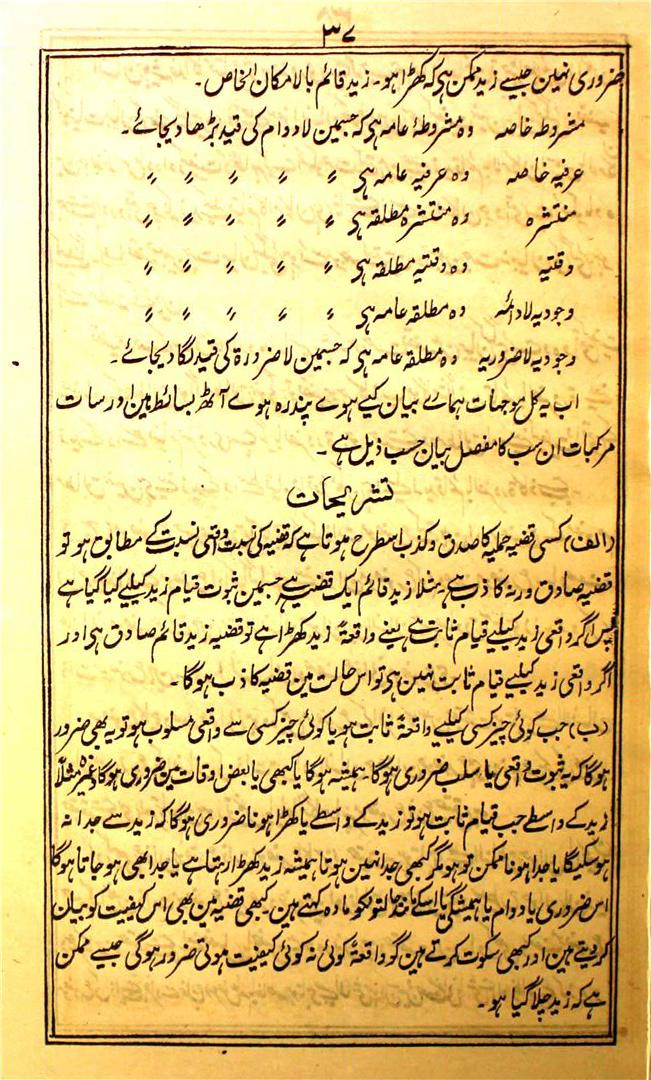 ۳۷
ضروری نہین جیسے زید ممکن ہی کہ کھڑا ہو۔ زید قائم بالامکان الخاص۔
مشروطہ خاصہ وہ مشروطۂ عامہ ہی کہ جسمین لادوام کی قید بڑھا دیجائے۔
عرفیہ خاصہ وہ عرفیہ عامہ ہی 〃 〃 〃 〃 〃
منتشرہ وہ منتشرہ مطلقہ ہی 〃 〃 〃 〃 〃
وقتیہ وہ وقتیہ مطلقہ ہی 〃 〃 〃 〃 〃
وجودیہ لادائمہ وہ مطلقہ عامہ ہی 〃 〃 〃 〃 〃
وجودیہ لاضروریہ وہ مطلقہ عامہ ہی کہ جسمین لا ضرورۃ کی قید لگا دیجائے۔
اب یہ کل موجہات ہمارے بیان کیے ہوے پندرہ ہوے آٹھ بسائط ہین اور سات
مرکبات ان سب کا مفصل بیان حسب ذیل ہے۔
تشریحات
(الف) کسی قضیہ حملیہ کا صدق و کذب اسطرح ہوتا ہے کہ قضیہ کی نسبت واقعی نسبت کے مطابق ہو تو
قضیہ صادق ورنہ کاذب ہے۔ مثلا زید قائم ایک قضیہ ہے جسمین ثبوت قیام زید کیلیے کیا گیا ہے
پس اگر واقعی زید کیلیے قیام ثابت ہے یعنے واقعۃً زید کھڑا ہے تو قضیہ زید قائم صادق ہی اور
اگر واقعی زید کیلیے قیام ثابت نہین ہی تو اس حالت مین قضیہ کاذب ہوگا۔
(ب) جب کوئی چیز کسی کیلیے واقعۃً ثابت ہو یا کوئی چیز کسی سے واقعی مسلوب ہو تو یہ بھی ضرور
ہوگا کہ یہ ثبوت واقعی یا سلب ضروری ہوگا۔ ہمیشہ ہوگا یا کبھی یا بعض اوقات مین ضروری ہوگا وغیرہ مثلاً
زید کے واسطے جب قیام ثابت ہو تو زید کے واسطے یا کھڑا ہونا ضروری ہوگا کہ زید سے جدا نہ
ہوسکیگا یا جدا ہونا ممکن تو ہو مگر کبھی جدا نہین ہوتا ہمیشہ زید کھڑا رہتا ہے یا جدا بھی ہو جاتا ہوگا
اس ضروری یا دوام یا ہمیشگی یا اسکے مانند حالتونکو مادہ کہتے ہین کبھی قضیہ مین بھی اس کیفیت کو بیان
کر دیتے ہین اور کبھی سکوت کرتے ہین گو واقعۃً کوئی نہ کوئی کیفیت ہوتی ضرور ہوگی جیسے ممکن
ہے کہ زید چلا گیا ہو۔